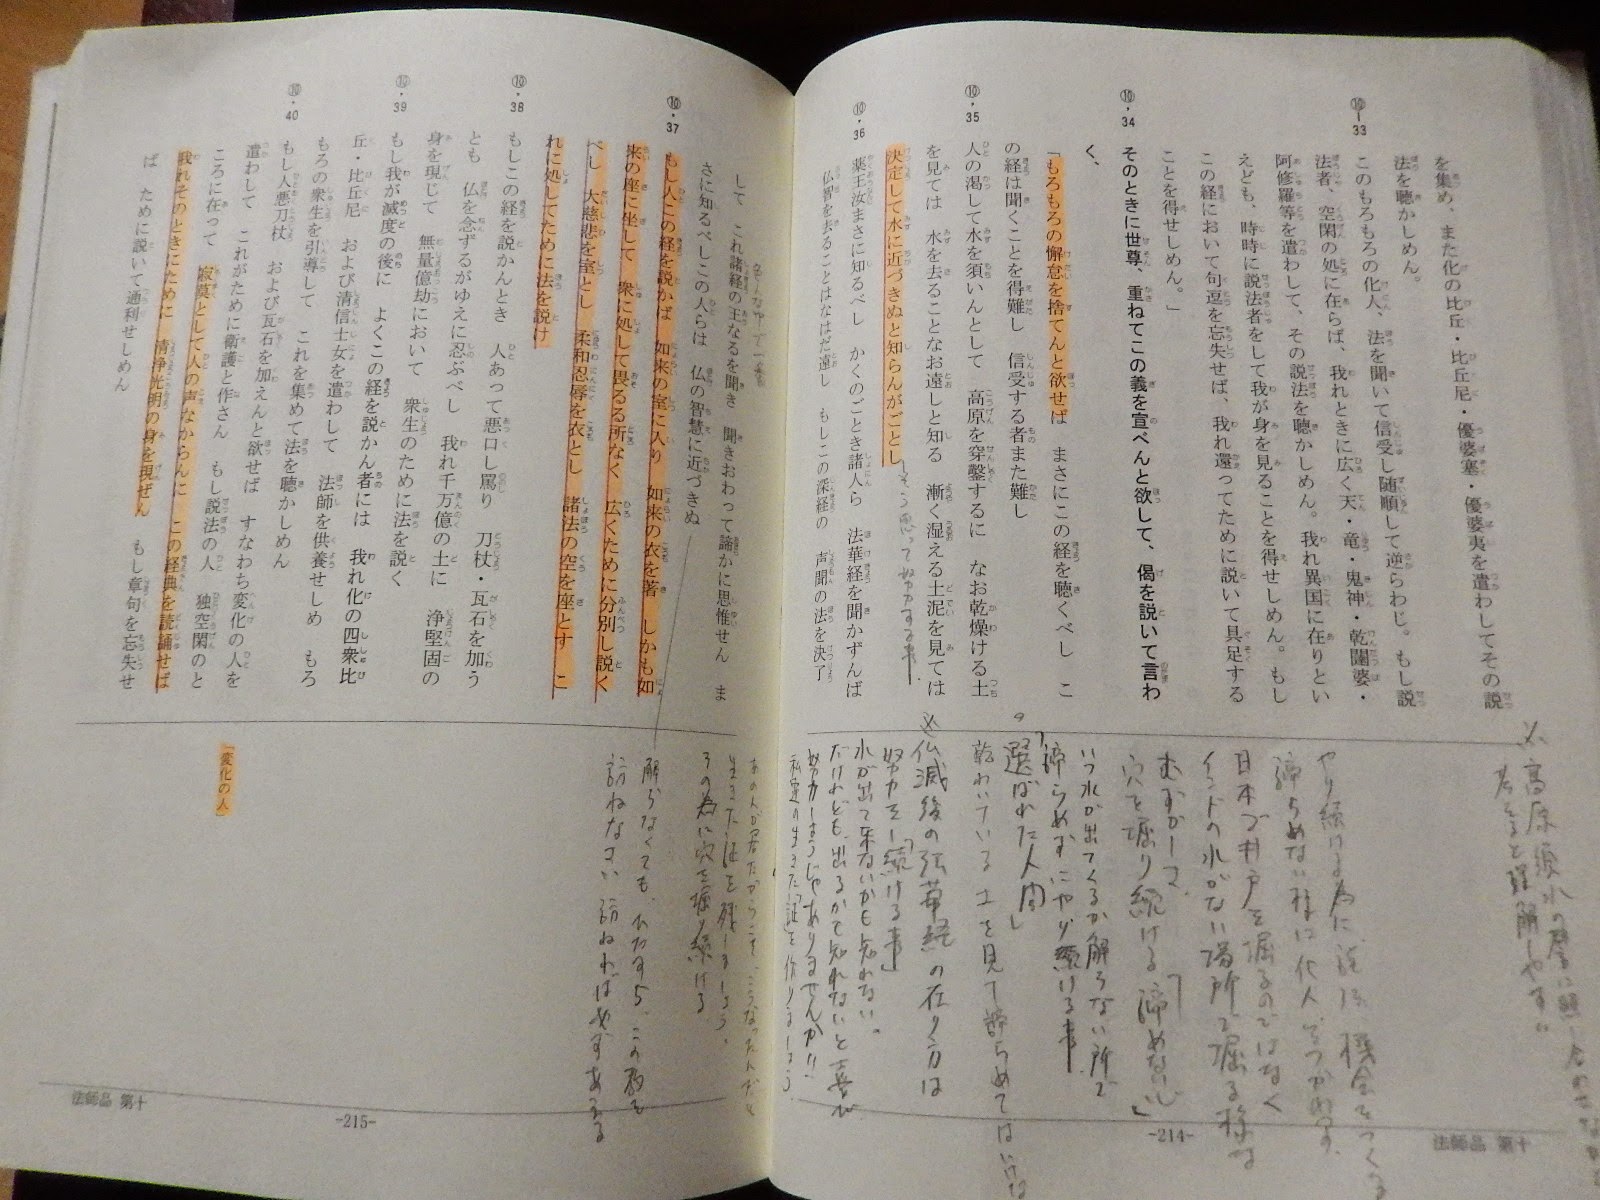 を集め、また化の比丘・比丘尼・優婆塞・優婆夷を遣わしてその説
法を聴かしめん。
⑩-33
このもろもろの化人、法を聞いて信受し随順して逆らわじ。もし説
法者 空閑の処に在らば、我れときに広く天・竜・鬼神・乾闥婆・
阿修羅等を遣わして、その説法を聴かしめん。我れ異国に在りとい
えども、時時に説法者をして我が身を見ることを得せしめん。もし
この経において句逗を忘失せば、我れ還ってために説いて具足する
ことを得せしめん。」
⑩・34
そのときに世尊、重ねてこの義を宣べんと欲して、偈を説いて言わ
く、
「もろもろの懈怠を捨てんと欲せば まさにこの経を聴くべし こ
の経は聞くことを得難し 信受する者また難し
⑩・35
人の渇して水を須いんとして 高原を穿鑿するに なお乾燥ける土
を見ては 水を去ることなお遠しと知る 漸く湿える土泥を見ては
決定して水に近づきぬと知らんがごとし
⑩・36
薬王汝まさに知るべし かくのごとき諸人ら 法華経を聞かずんば
仏智を去ることはなはだ遠し もしこの深経の 声聞の法を決了
高原
やり続ける為に
諦らめない様に化人
日本で井戸を掘るのではなく
インドの水がない場所で掘る様な
むずかしさ
穴を掘り続ける「諦めない心」
いつ水が出てくるか解らない所で
諦らめずにやり続ける事
「選ばれた人間」
乾わいている土を見て諦らめてはいけな
仏滅後の法華経の在り方は
努力を「続ける事」
水が出て来ないかも知れない。
だけれども、出るかも知れないと喜び
努力しようじゃありませんか!!
法師品 第十
-214-
して これ諸経の王なるを聞き 聞きおわって諦かに思惟せん ま
さに知るべしこの人らは 仏の智慧に近づきぬ
⑩・37
もし人この経を説かば 如来の室に入り 如来の衣を著 しかも如
来の座に坐して 衆に処して畏るる所なく 広くために分別し説く
べし 大慈悲を室とし 柔和忍辱を衣とし 諸法の空を座とす こ
れに処してために法を説け
⑩・38
もしこの経を説かんとき 人あって悪口し罵り 刀杖・瓦石を加う
とも 仏を念ずるがゆえに忍ぶべし 我れ千万億の土に 浄堅固の
身を現じて 無量億劫において 衆生のために法を説く
⑩・39
もし我が滅度の後に よくこの経を説かん者には 我れ化の四衆比
丘・比丘尼 および清信士女を遣わして 法師を供養せしめ もろ
もろの衆生を引導して これを集めて法を聴かしめん
⑩・40
もし人悪刀杖 および瓦石を加えんと欲せば すなわち変化の人を
遣わして これがために衛護と作さん もし説法の人 独空閑のと
ころに在って 寂莫として人の声なからんに この経典を読誦せば
我れそのときにために 清浄光明の身を現ぜん もし章句を忘失せ
ば ために説いて通利せしめん
生きた証を残しましょう。
その為に穴を掘り続ける
解らなくても、ひたすら、この教を
訪ねなさい 訪ねれば必ずあたる
「変化の人」
法師品 第十
-215-